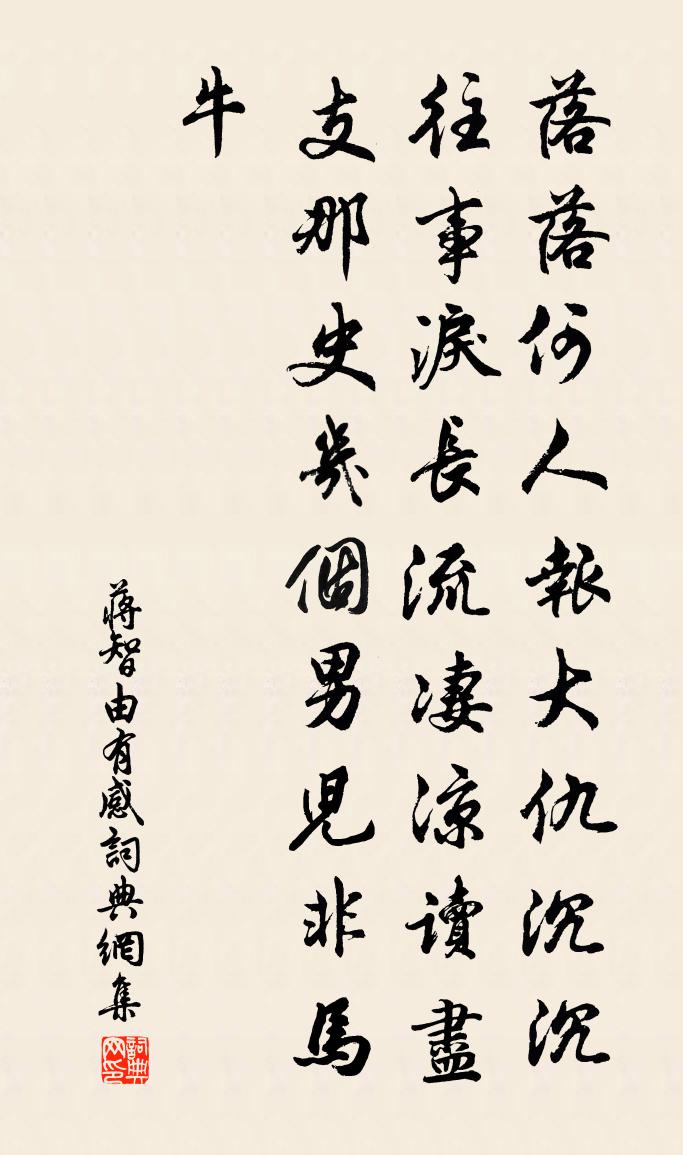 落落何人報大仇沉沉
往事淚長流淒涼讀盡
支那史幾個男児非馬
牛
蔣智由有感詞典網集
詞典
网印